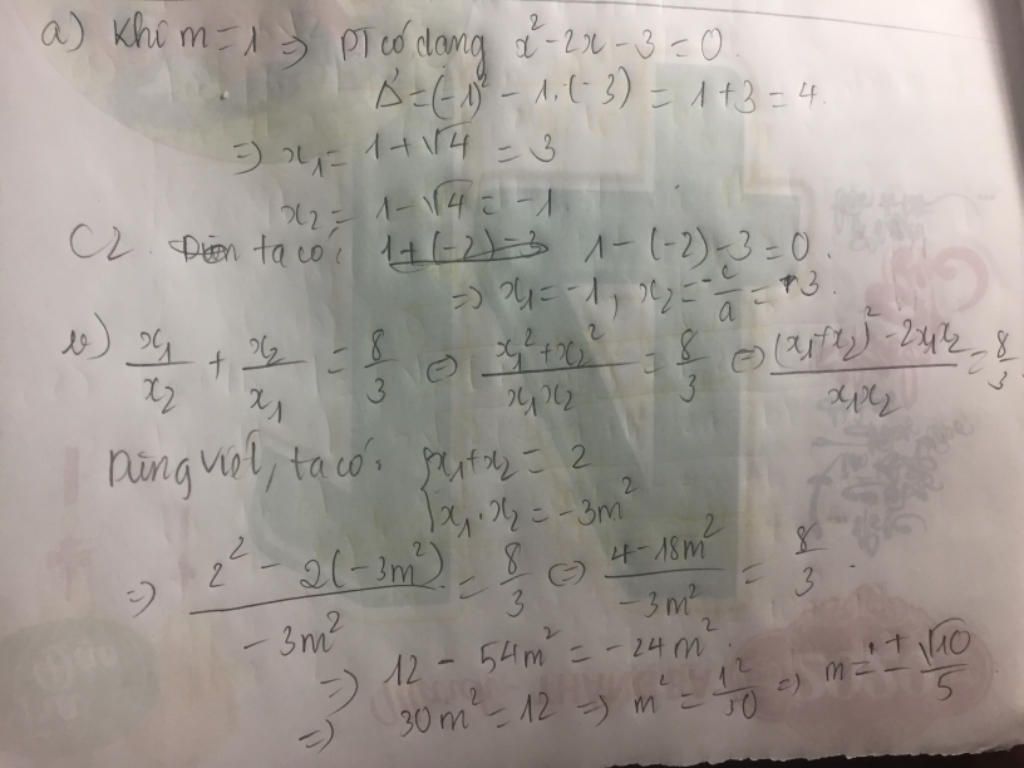 a) Khi m = 1 => PT có dạng x² - 2x - 3 = 0.
Δ' = (-1)² - 1.(-3) = 1 + 3 = 4.
=> x₁ = 1 + √4 = 3
x₂ = 1 - √4 = -1.
C2. ta có: 1 + (-2) - 3 1 - (-2) - 3 = 0.
=> x₁ = -1, x₂ = -c/a = +3.
b) x₁/x₂ + x₂/x₁ = 8/3 <=> (x₁² + x₂²)/(x₁x₂) = 8/3 <=> ((x₁+x₂)² - 2x₁x₂)/(x₁x₂) = 8/3.
Dùng viet, ta có: { x₁ + x₂ = 2
x₁ . x₂ = -3m²
=> (2² - 2(-3m²))/(-3m²) = 8/3 <=> (4 - 18m²)/(-3m²) = 8/3.
=> 12 - 54m² = -24m².
=> 30m² = 12 => m² = 12/30 => m = ± √10/5